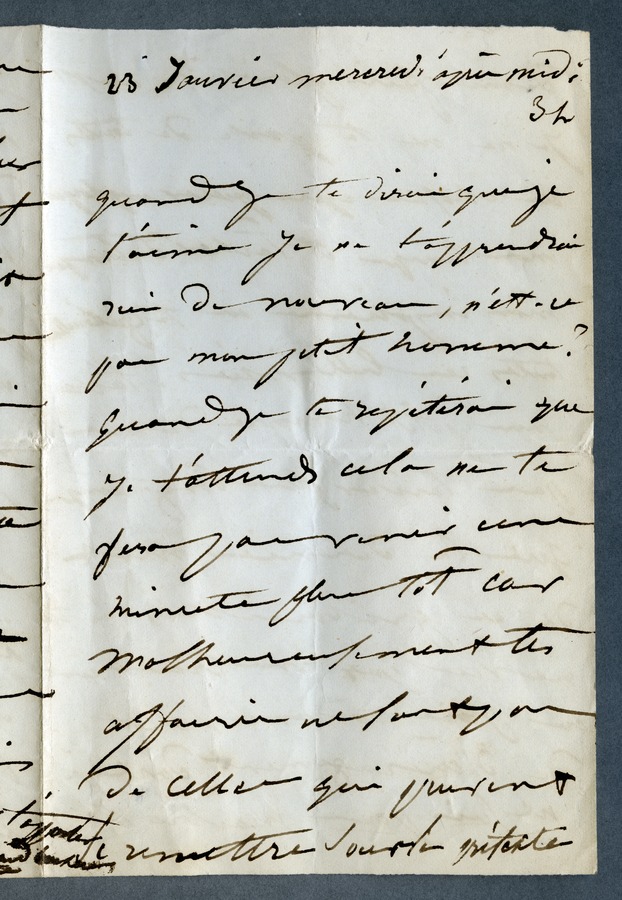 23 Janvier mercredi après midi
3h
quand je te dirai que je
t'aime je ne t'apprendrai
rien de nouveau, n'est-ce
pas mon petit homme?
Quand je te répéterai que
je t'attends cela ne te
fera pas venir une
minute plus tôt car
malheureusement tes
affaires ne sont pas
de celles qui peuvent
se remettre sous le prétexte